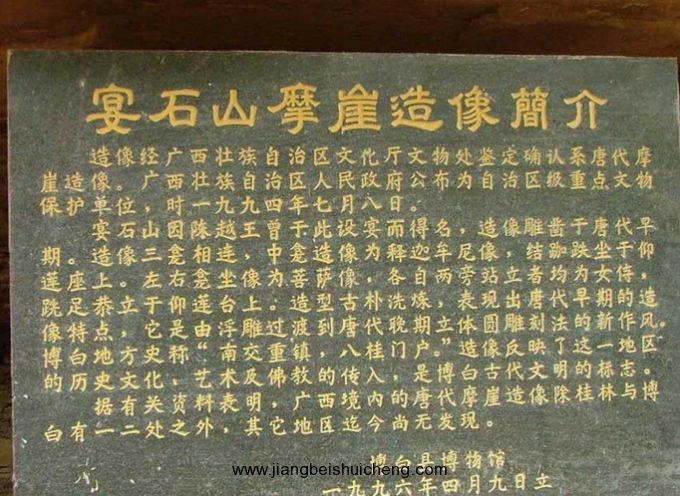 宴石山摩崖造像簡介
造像经广西壮族自治区文化厅文物处鉴定确认系唐代摩
崖造像。广西壮族自治区人民政府公布为自治区级重点文物
保护单位，时一九九四年七月八日。
宴石山因陈越王曾于此设宴而得名，造像雕凿于唐代早
期。造像三龛相连，中龛为释迦牟尼像，结跏趺坐于仰
莲座上。左右龛坐像菩萨像，各自两旁站立者均为女侍，
跣足恭立于仰莲台上。造型古朴洗炼，表现出唐代早期的造
像特点，它是由浮雕过重到唐代晚期立体圆雕刻法的新作风。
博白地方史称“南交镇，八桂门户。”造像反映了这一地区
的历史文化，艺术及佛教的传入，是博白古代文明的标志。
据有关资料表明，广西境内的唐代摩崖造像除桂林与博
白有一二处之外，其它地区迄今尚无发现。
博白县博物馆
一九九六年四月九日立
www.jiangbeishuicheng.com